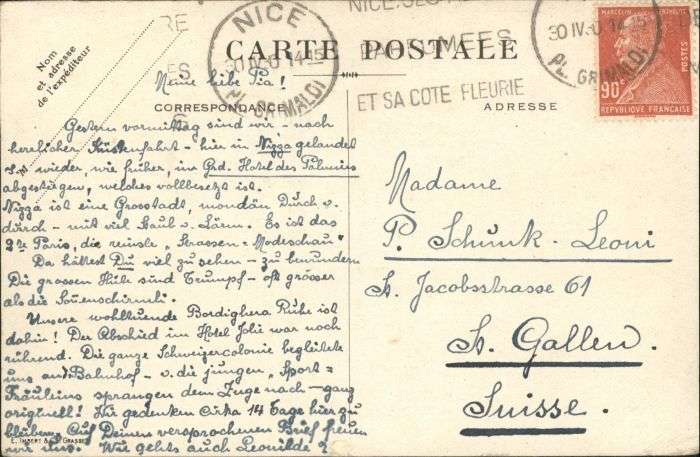 NICE
30 IV.30 14-15
PL. GRIMALDI
PARFUMÉES
ET SA COTE FLEURIE
NICE
30 IV.30 14-15
PL. GRIMALDI
MARCELIN BERTHELOT
POSTES
90c
REPUBLIQUE FRANÇAISE
Nom
et adresse
de l'expéditeur
CARTE POSTALE
CORRESPONDANCE
ADRESSE
Meine liebe Pia!
Gestern vormittag sind wir - nach
herrlicher Küstenfahrt - hier in Nizza gelandet
u. wieder, wie früher, im Grd. Hotel des Palmiers
abgestiegen, welches vollbesetzt ist.
Nizza ist eine Grosstadt, mondän durch u.
durch - mit viel Staub u. Lärm. Es ist das
2te Paris, die reinste "Strassen-Modeschau"
Da hättest Du viel zu sehen - zu bewundern
Die grossen Hüte sind Trumpf - oft grösser
als die Sonenschirmli.
Unsere wohltuende Bordighera Ruhe ist
dahin! Der Abschied im Hotel Jolie war noch
rührend. Die ganze Schweizercolonie begleitete
uns an Bahnhof - u. die jungen "Sport=
Fräuleins sprangen dem Zuge nach - ganz
originell! Wir gedenken cirka 14 Tage hier zu
bleiben. Auf Deinen versprochenen Brief freuen
wir uns. Wie gehts auch Leonilde?
E. IMBERT & GRASSE
Madame
P. Schunk-Leoni
St. Jacobsstrasse 61
St. Gallen.
Suisse.